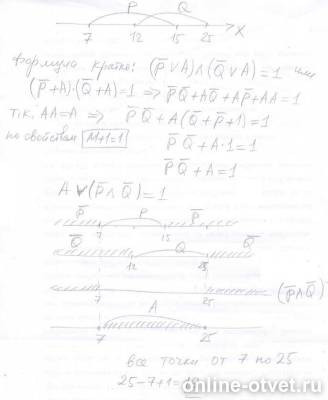 P Q
7 12 15 25 X
Формула кратко: (P̅∨A)∧(Q̅∨A)=1 или
(P̅+A)·(Q̅+A)=1 ⇒ P̅Q̅+AQ̅+AP̅+AA=1
т.к. AA=A ⇒ P̅Q̅+A(Q̅+P̅+1)=1
по свойствам M+1=1 P̅Q̅+A·1=1
P̅Q̅+A=1
A∨(P̅∧Q̅)=1
P̅ P P̅
7 15
Q̅ Q Q̅
12 25
7 25 (P̅∧Q̅)
A
7 25
все точки от 7 по 25
25-7+1=
online-otvet.ru